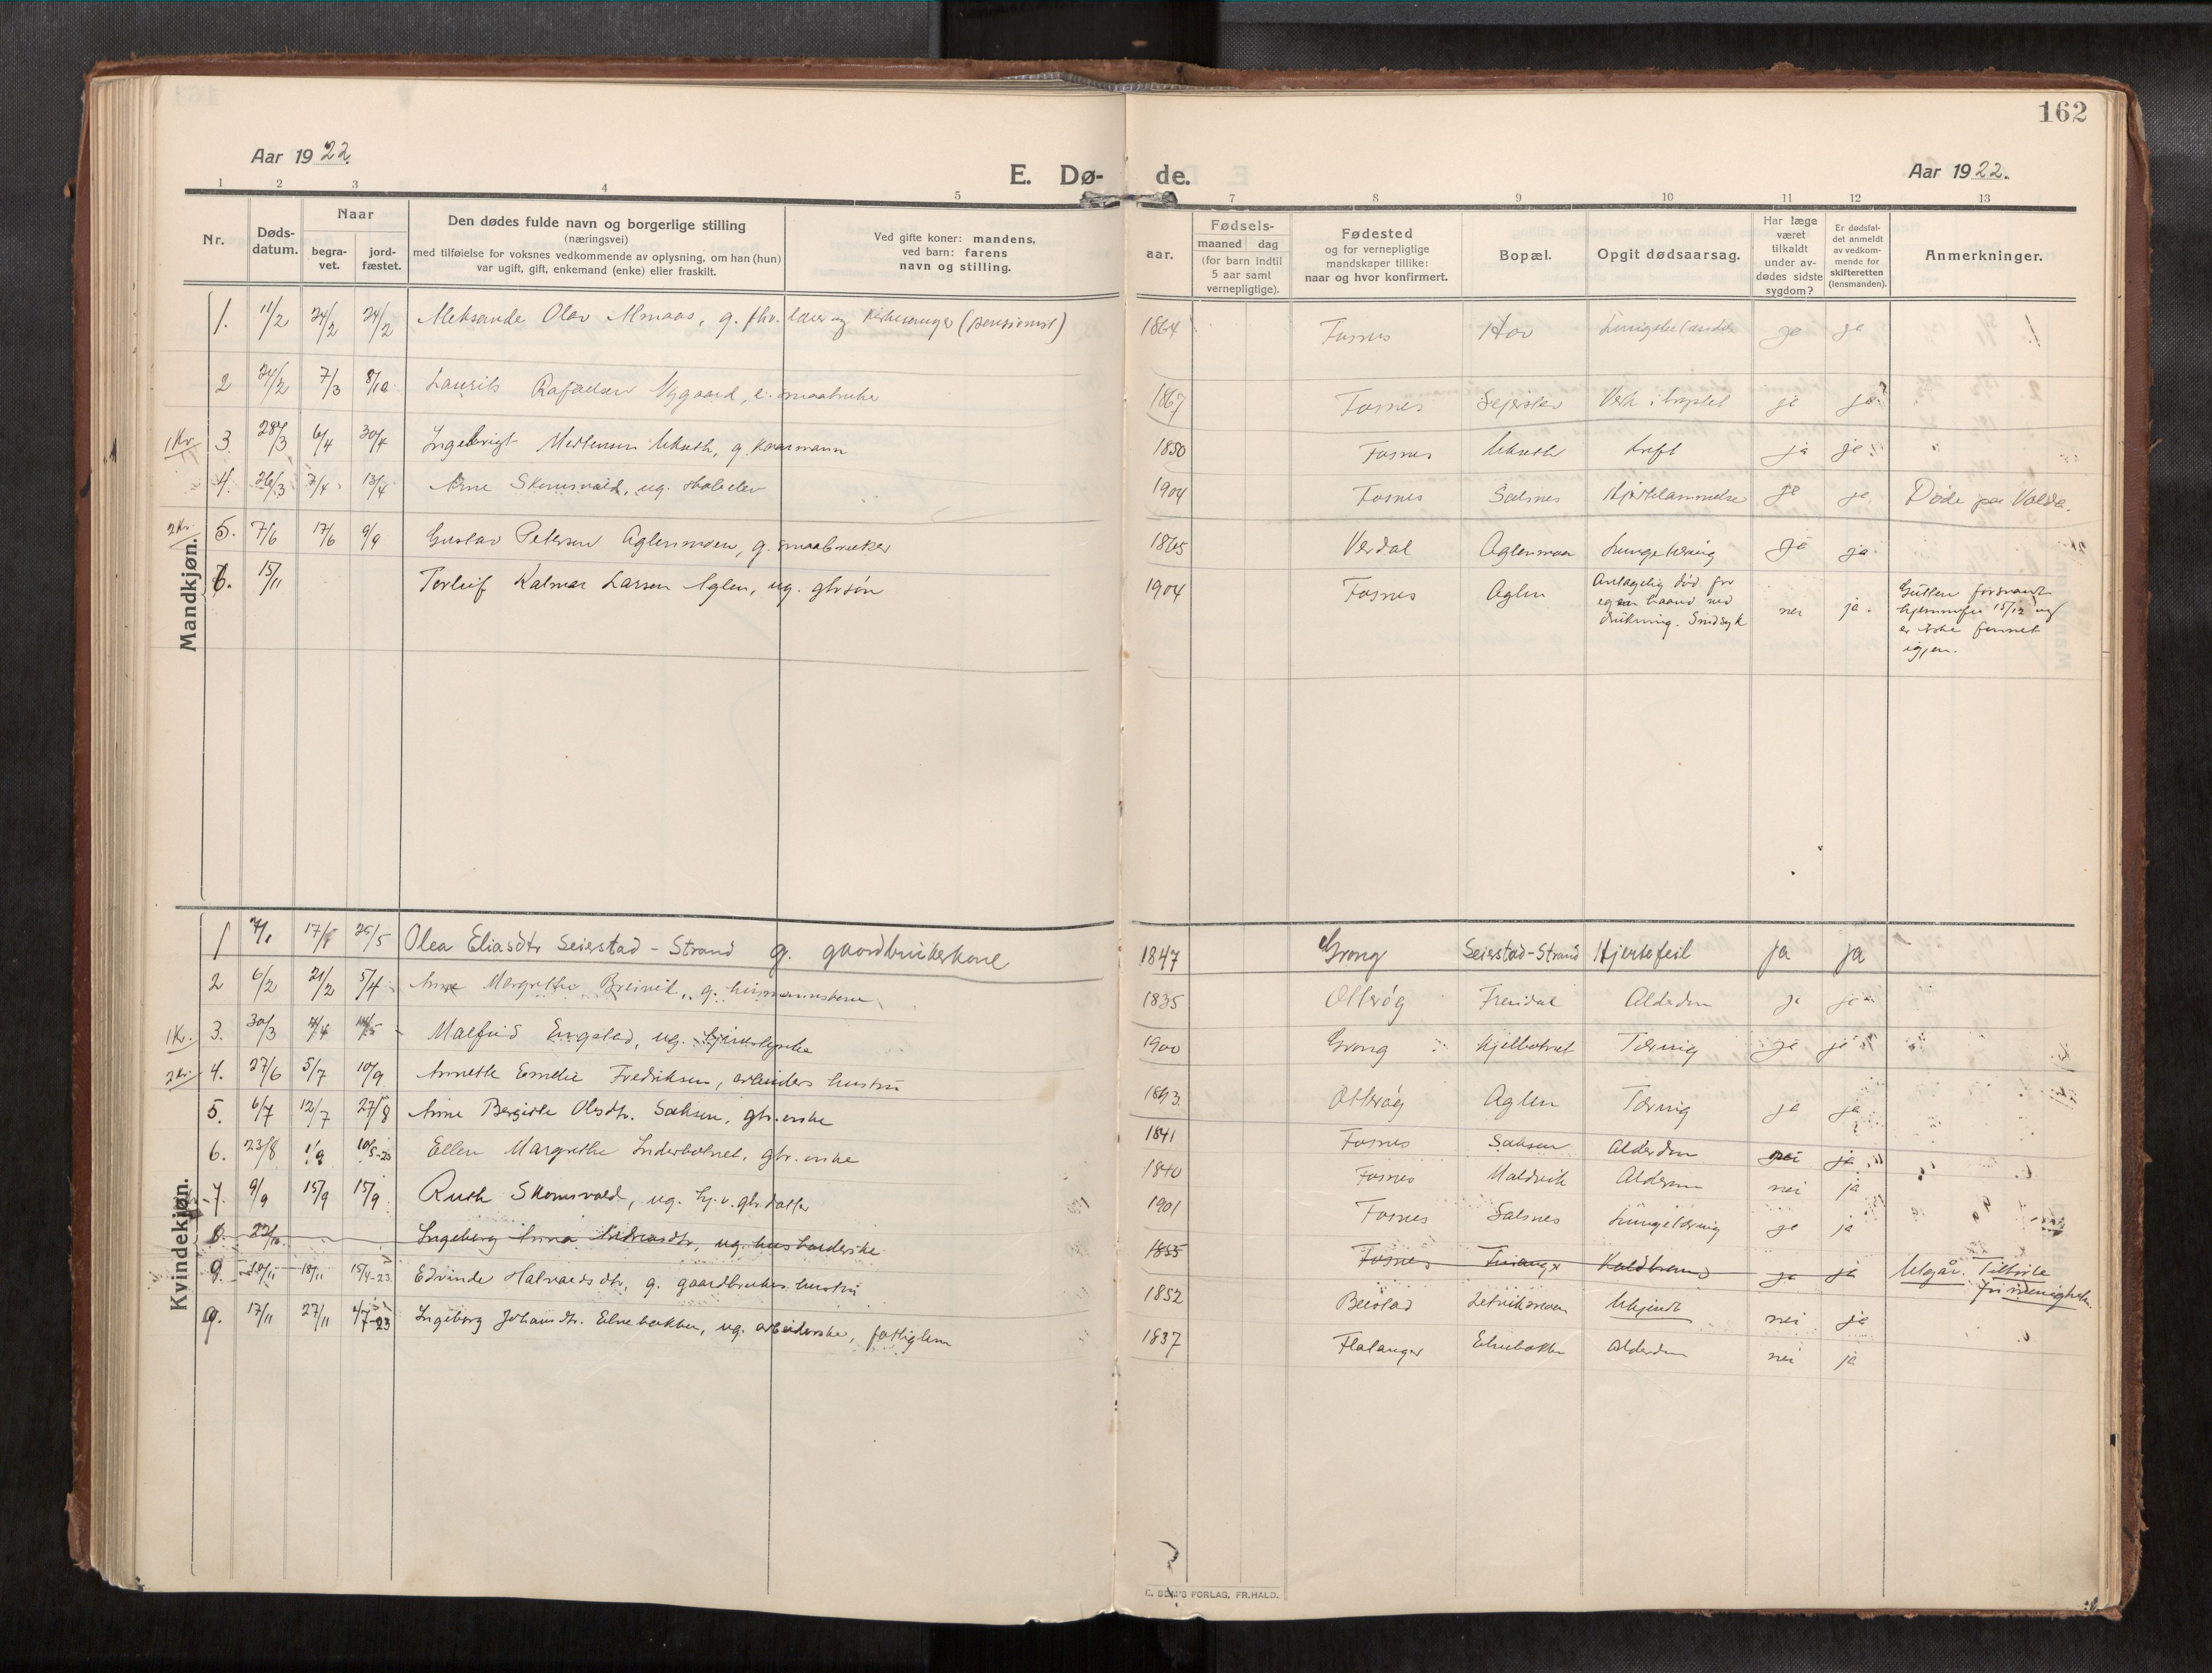 162
Aar 1922.
E. Dø-
de.
Aar 1922.
1 2 3 4 5 7 8 9 10 11 12 13
Nr.
Døds-
datum.
Naar
begra-
vet.
jord-
fæstet.
Den dødes fulde navn og borgerlige stilling
(næringsvei)
med tilføielse for voksnes vedkommende av oplysning, om han (hun)
var ugift, gift, enkemand (enke) eller fraskilt.
Ved gifte koner: mandens,
ved barn: farens
navn og stilling.
aar.
Fødsels-
maaned dag
(for barn indtil
5 aar samt
vernepligtige).
Fødested
og for vernepligtige
mandskaper tillike:
naar og hvor konfirmert.
Bopæl.
Opgit dødsaarsag.
Har læge
været
tilkaldt
under av-
dødes sidste
sygdom?
Er dødsfal-
det anmeldt
av vedkom-
mende for
skifteretten
(lensmanden).
Anmerkninger.
Mandkjøn.
1. 11/2 24/2 24/2 Aleksander Olav Almaas, g. fhv. lærer og kirkesanger (pensionist) 1864 Fosnes Hov ja ja
2 24/2 7/3 8/10 Laurits Rafaelsen Nygaard, e. smaabruker 1867 Fosnes Seierstad ja ja
1 Kr. 3. 28/3 6/4 30/4 Ingebrigt Mortensen Ukseth, g. kaarmann 1850 Fosnes Ukseth ja ja
4. 26/3 7/4 13/4 Arne Skomsvold, ug. skoleelev 1904 Fosnes Salsnes Hjertelammelse ja ja Døde paa Volda.
2 Kr. 5. 7/6 17/6 9/9 Gustav Petersen Aglenmoen, g. smaabruker 1865 Verdal Aglenmoen Lungetæring ja ja
6. 15/11 Torleif Kalmar Larsen Aglen, ug. gbr.søn 1904 Fosnes Aglen Antagelig død for
egen haand ved
drukning. Sindsyk nei ja. Gutten forsvandt
hjemmefra 15/12 og
er ikke funnet
igjen.
Kvindekjøn.
1 17/4 25/5 Olea Eliasdtr Seierstad - Strand g. gaardbrukerkone 1847 Grong Seierstad-Strand Hjertefeil ja ja
2 6/2 21/2 5/4 Anne Margrethe Breivik, g. husmannskone 1835 Otterøy Alderdom ja ja
1 Kr. 3. 30/3 Malfrid Engstad, ug. 1900 Grong Kjelbotnet Tæring ja ja
2 Kr. 4. 27/6 5/7 10/9 Annette Emelie Fredriksen, arbeiders hustru 1893 Otterøy Aglen Tæring ja ja
5. 6/7 12/7 27/8 Anne Bergitte Olsdtr. Saksen, gbr.enke 1841 Fosnes Saksen Alderdom nei ja
6. 23/8 1/9 10/5-23 Ellen Margrethe Inderbotnet, gbr. enke 1840 Fosnes Maldvik Alderdom nei ja
7. 9/9 15/9 15/9 Ruth Skomsvold, ug. hj.v. gbr.datter 1901 Fosnes Salsnes Lungetæring ja ja
8. 22/10 Ingeborg Anna Andreasdtr, ug. husholderske 1855 Fosnes Koldbrand ja ja Utgår. Tilhørte
frimenigheten.
9. 10/11 18/11 15/4-23 Edvinde Halvardsdtr, g. gaardbrukers hustru 1852 Beistad Ukjendt nei ja
9. 17/11 27/11 1/7-23 Ingeborg Johansdtr. Elvebakken, ug. arbeiderske, fattiglem 1837 Flatanger Elvebakken Alderdom nei ja
E. SEM'S FORLAG, FR.HALD.